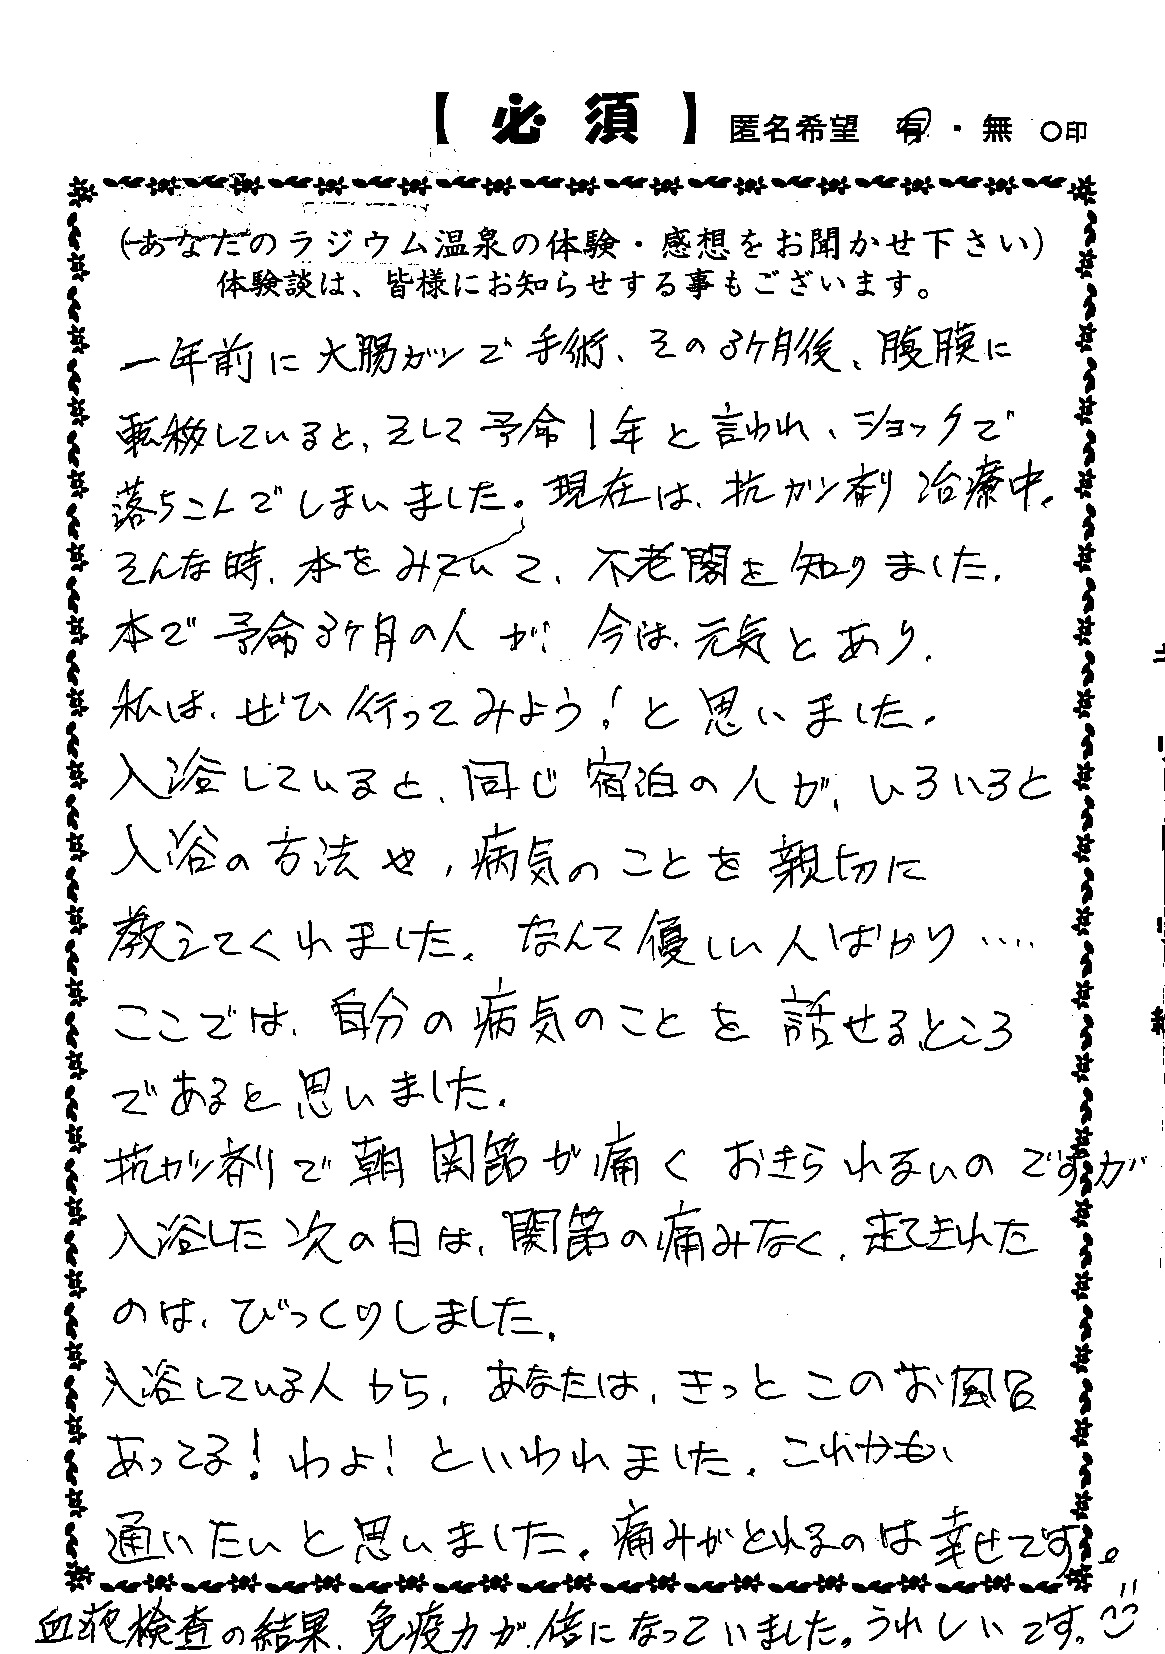 【 必 須 】 匿名希望 有 ・ 無 ○印
(あなたのラジウム温泉の体験・感想をお聞かせ下さい)
体験談は、皆様にお知らせする事もございます。
一年前に大腸ガンで手術、その3ケ月後、腹膜に
転移していると、そして予命1年と言われ、ショックで
落ちこんでしまいました。現在は、抗ガン剤治療中。
そんな時、本をみていて、不老閣を知りました。
本で予命3ケ月の人が、今は、元気とあり、
私は、ぜひ行ってみよう!と思いました。
入浴していると、同じ宿泊の人が、いろいろと
入浴の方法や、病気のことを親切に
教えてくれました。なんて優しい人ばかり‥‥
ここでは、自分の病気のことを話せるところ
であると思いました。
抗ガン剤で朝関節が痛くおきられないのですが
入浴した次の日は、関節の痛みなく、起てきれた
のは、びっくりしました。
入浴している人から、あなたは、きっとこのお風呂
あってる!わよ!といわれました。これからも、
通いたいと思いました。痛みがとれるのは幸せです。
血液検査の結果、免疫力が、倍になっていました。うれしいです。